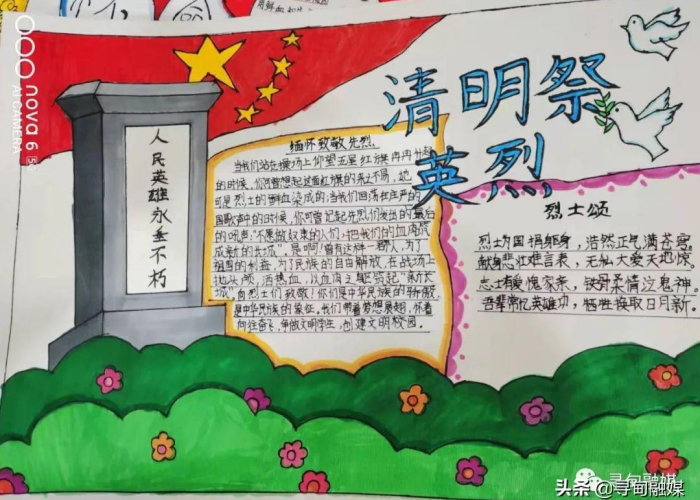 清明祭
英烈
人民英雄永垂不朽
缅怀致敬先烈
当我们站在操场上仰望五星红旗冉冉升起
的时候,你可曾想起这面红旗的来之不易,她
可是烈士的鲜血染成的;当我们回荡在庄严的
国歌声中的时候,你可曾记起先烈们发出的最后
的吼声,"不愿做奴隶的人们,把我们的血肉筑
成新的长城"。是啊!曾有这样一群人,为了
祖国的利益,为了民族的自由解放,在战场上
抛头颅,洒热血,以血肉之躯筑起"新的长
城",向烈士们致敬!你们是中华民族的骄傲,
是中华民族的象征。我们带着梦想展翅,怀着
向往奋飞,争做文明学生,创建文明校园。
烈士颂
烈士为国捐躯身,浩然正气满苍穹
献身悲壮难言表,无私大爱天地惊
忠士有爱愧家亲,铁骨柔情泣鬼神。
吾辈常忆英雄功,牺牲换取日月新。
nova 6
AI CAMERA
寻甸融媒
头条@寻甸融媒